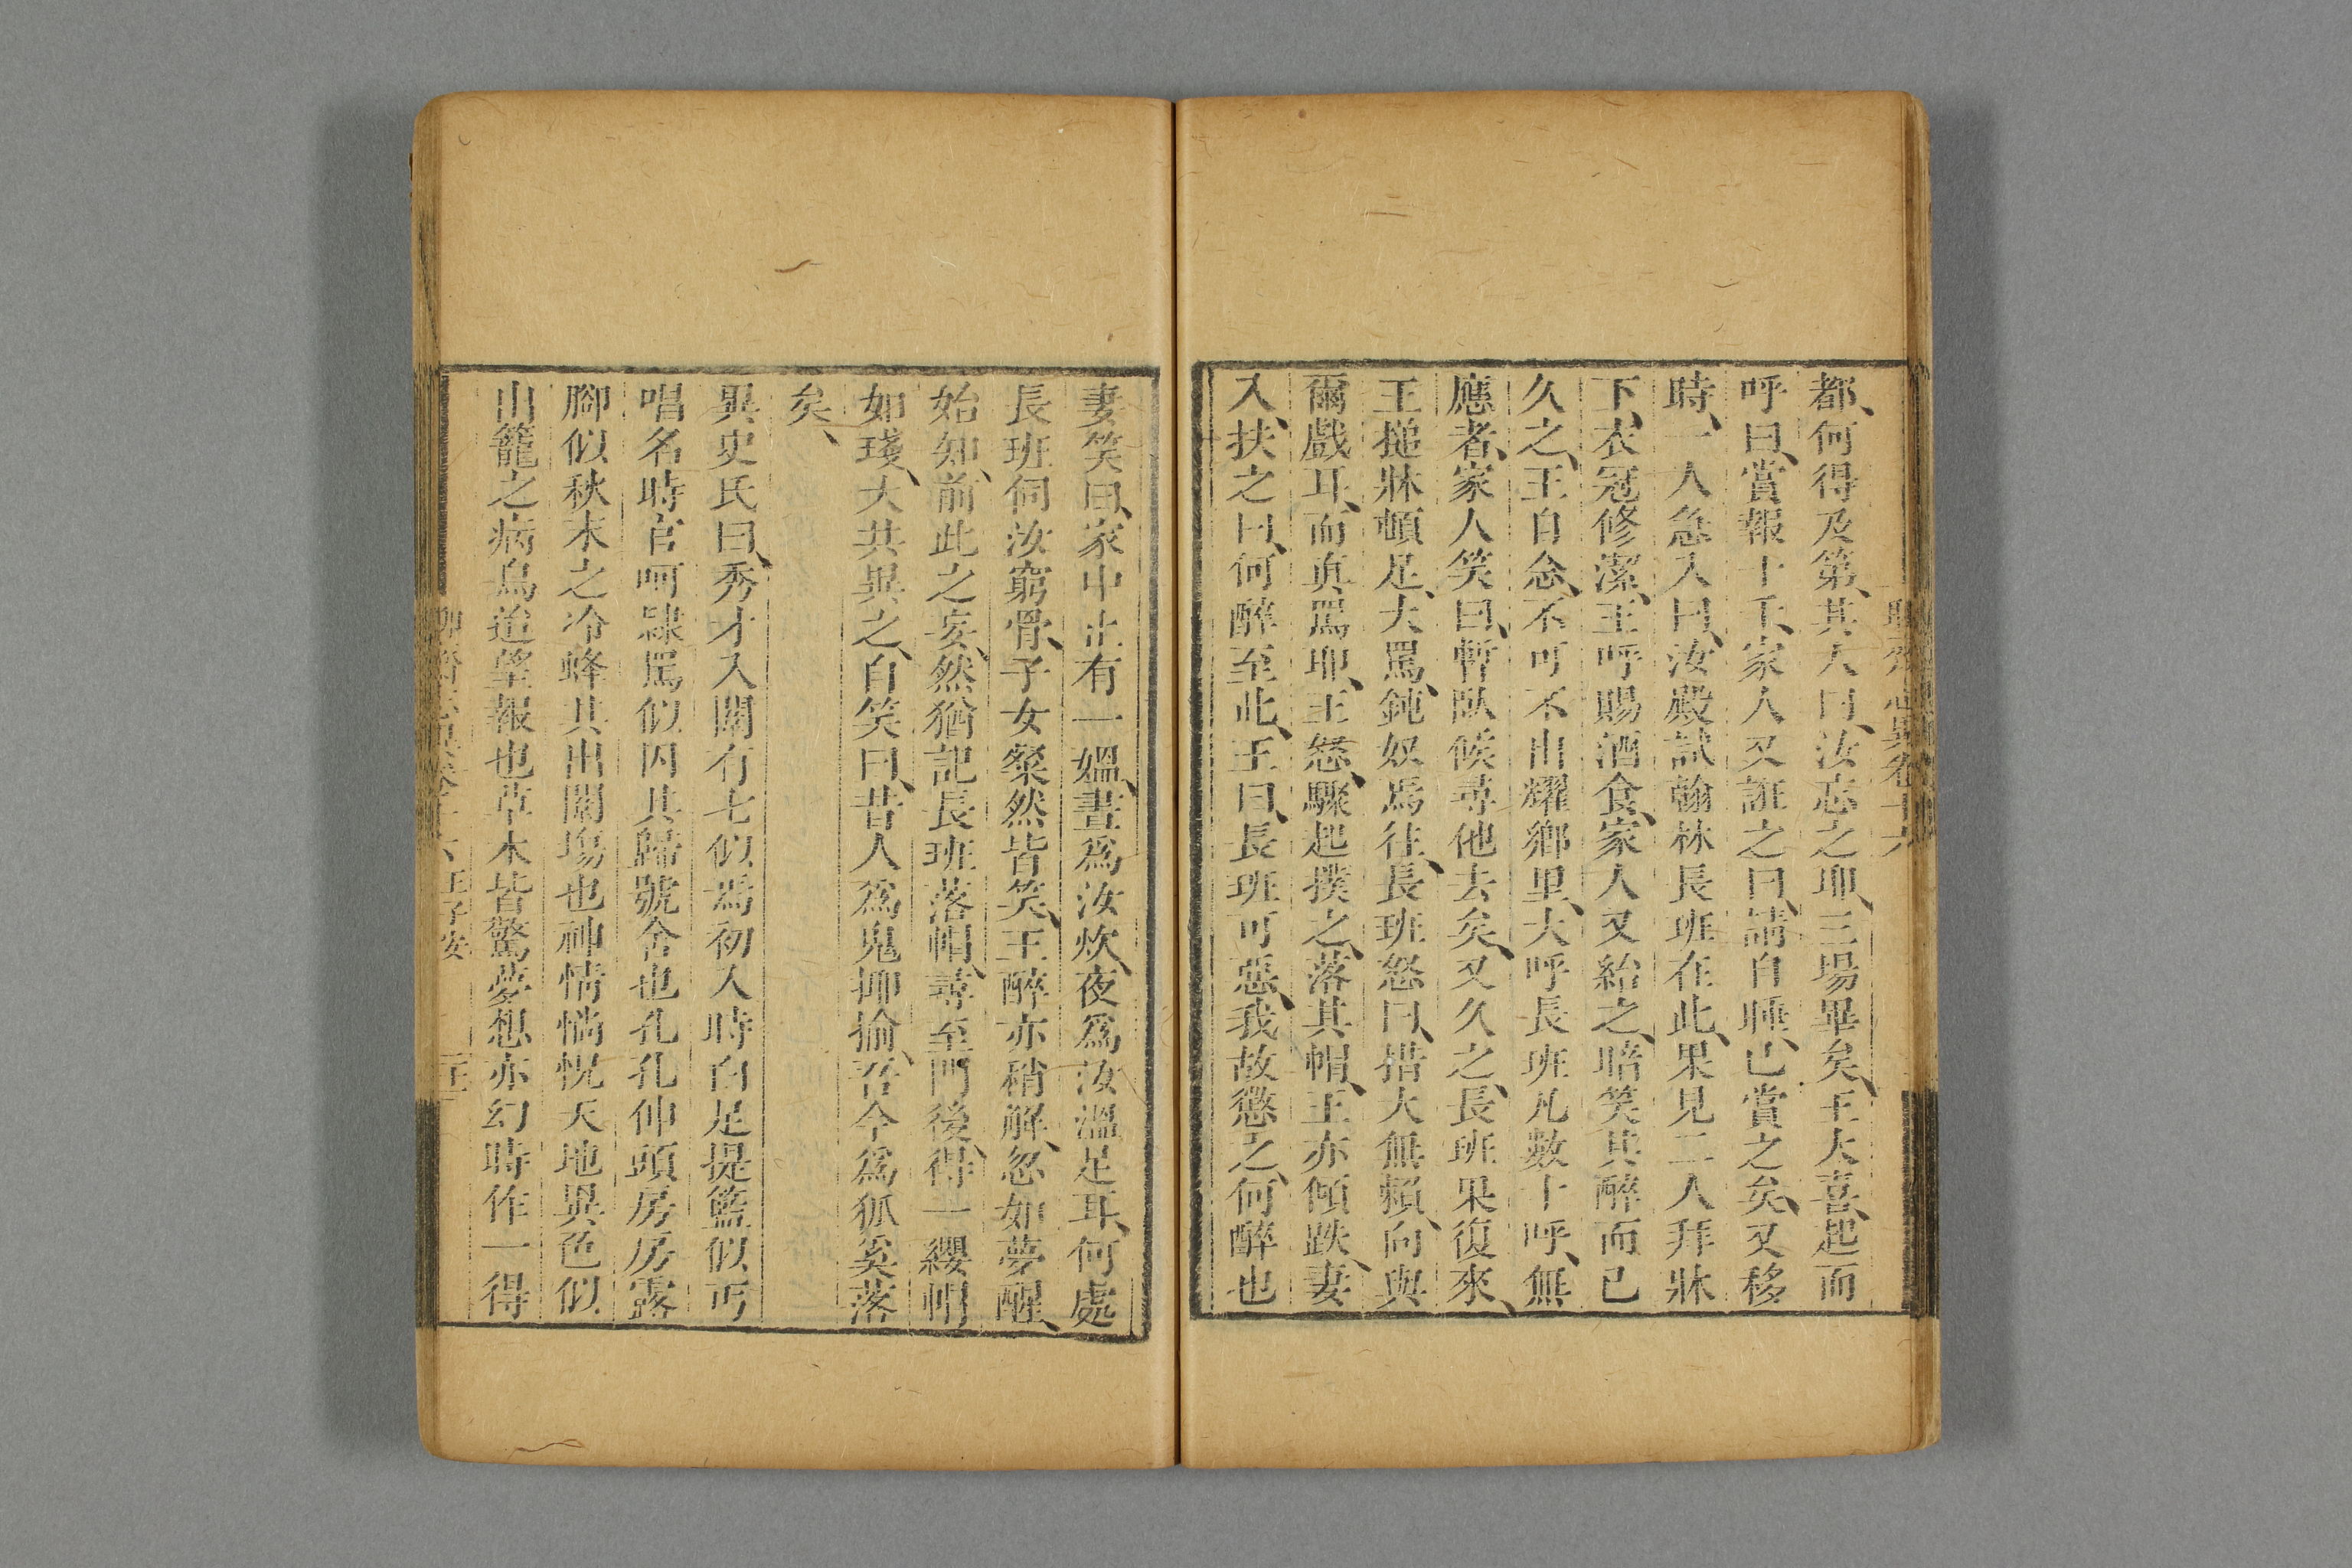 都、何得及第、其人曰、汝忘之耶、三場畢矣、王大喜、起而
呼曰、賞報十千、家人又誑之曰、請自睡、已賞之矣、又移
時、一人急入曰、汝殿試翰林、長班在此、果見二人拜牀
下、衣冠修潔、王呼賜酒食、家人又紿之、暗笑其醉而已
久之、王自念、不可不出耀鄉里、大呼長班、凡數十呼、無
應者、家人笑曰、暫臥候、尋他去矣、又久之、長班果復來、
王搥牀頓足、大罵、鈍奴焉往、長班怒曰、措大無賴、向與
爾戲耳、而真罵耶、王怒、驟起撲之、落其帽、王亦傾跌、妻
入、扶之曰、何醉至此、王曰、長班可惡、我故懲之、何醉也
聊齋志異卷十六
妻笑曰、家中止有一媼、晝爲汝炊、夜爲汝溫足耳、何處
長班伺汝窮骨、子女粲然皆笑、王醉亦稍解、忽如夢醒、
始知、前此之妄、然猶記長班落帽、尋至門後、得一纓帽
如琖、大共異之、自笑曰、昔人爲鬼揶揄、吾今爲狐奚落
矣、
異史氏曰、秀才入闈有七似焉初入時白足提籃似丐
唱名時官呵隸罵似囚其歸號舍也孔孔伸頭房房露
腳似秋末之冷蜂其出闈場也神情惝怳天地異色似
出籠之病鳥迨望報也草木皆驚夢想亦幻時作一得
聊齋志異卷十六 王子安